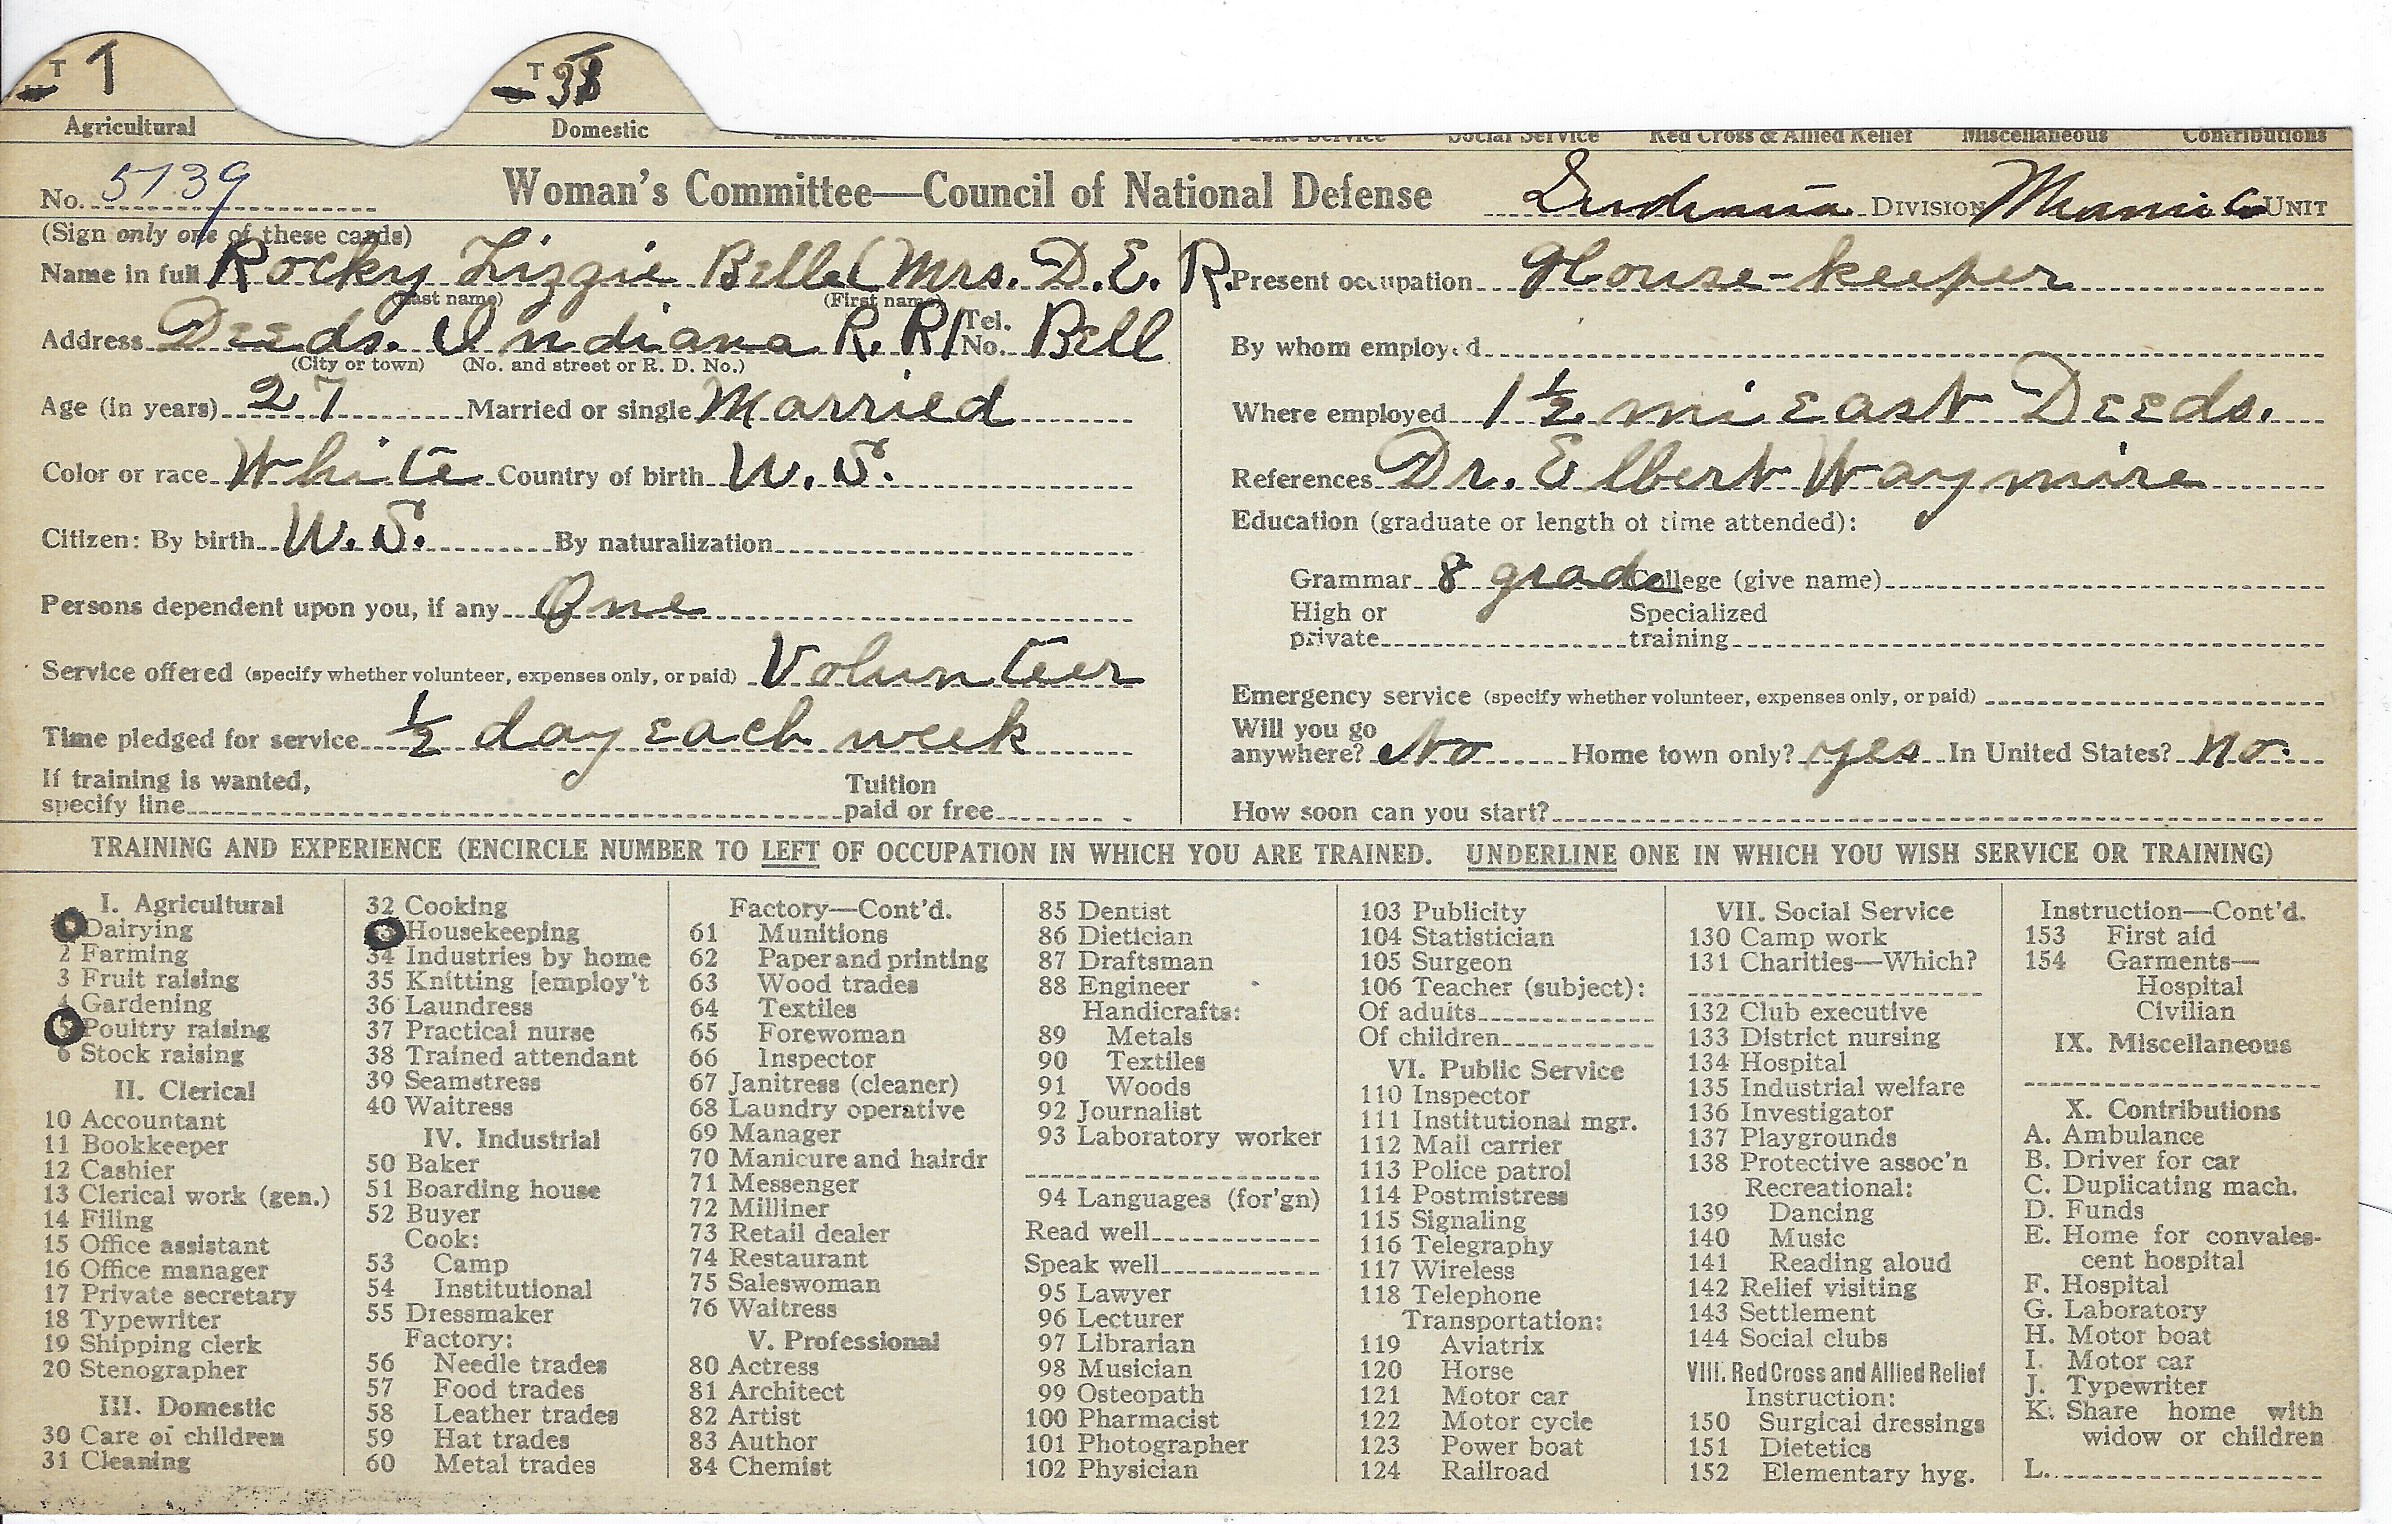 T 1
T 38
Agricultural Domestic Public Service Social Service Red Cross & Allied Relief Miscellaneous Contributions
No. 5739 Woman's Committee—Council of National Defense Indiana DIVISION Miami Co UNIT
(Sign only one of these cards)
Name in full Rocky Lizzie Belle (Mrs. D.E. R.
(Last name) (First name)
Address Deeds. Indiana R. R 1 Tel. No. Bell
(City or town) (No. and street or R. D. No.)
Age (in years) 27 Married or single Married
Color or race White Country of birth U. S.
Citizen: By birth U. S. By naturalization
Persons dependent upon you, if any One
Service offered (specify whether volunteer, expenses only, or paid) Volunteer
Time pledged for service ½ day each week
If training is wanted,
specify line Tuition paid or free
Present occupation House-keeper
By whom employed
Where employed 1 ½ mi east Deeds.
References Dr. Elbert Waymire
Education (graduate or length of time attended):
Grammar 8 grade College (give name)
High or private Specialized training
Emergency service (specify whether volunteer, expenses only, or paid)
Will you go
anywhere? No Home town only? yes In United States? no.
How soon can you start?
TRAINING AND EXPERIENCE (ENCIRCLE NUMBER TO LEFT OF OCCUPATION IN WHICH YOU ARE TRAINED. UNDERLINE ONE IN WHICH YOU WISH SERVICE OR TRAINING)
I. Agricultural
Dairying
2 Farming
3 Fruit raising
4 Gardening
5 Poultry raising
6 Stock raising
II. Clerical
10 Accountant
11 Bookkeeper
12 Cashier
13 Clerical work (gen.)
14 Filing
15 Office assistant
16 Office manager
17 Private secretary
18 Typewriter
19 Shipping clerk
20 Stenographer
III. Domestic
30 Care of children
31 Cleaning
32 Cooking
33 Housekeeping
34 Industries by home
35 Knitting [employ't
36 Laundress
37 Practical nurse
38 Trained attendant
39 Seamstress
40 Waitress
IV. Industrial
50 Baker
51 Boarding house
52 Buyer
Cook:
53 Camp
54 Institutional
55 Dressmaker
Factory:
56 Needle trades
57 Food trades
58 Leather trades
59 Hat trades
60 Metal trades
Factory—Cont'd.
61 Munitions
62 Paper and printing
63 Wood trades
64 Textiles
65 Forewoman
66 Inspector
67 Janitress (cleaner)
68 Laundry operative
69 Manager
70 Manicure and hairdr
71 Messenger
72 Milliner
73 Retail dealer
74 Restaurant
75 Saleswoman
76 Waitress
V. Professional
80 Actress
81 Architect
82 Artist
83 Author
84 Chemist
85 Dentist
86 Dietician
87 Draftsman
88 Engineer
Handicrafts:
89 Metals
90 Textiles
91 Woods
92 Journalist
93 Laboratory worker
94 Languages (for'gn)
Read well
Speak well
95 Lawyer
96 Lecturer
97 Librarian
98 Musician
99 Osteopath
100 Pharmacist
101 Photographer
102 Physician
103 Publicity
104 Statistician
105 Surgeon
106 Teacher (subject):
Of adults
Of children
VI. Public Service
110 Inspector
111 Institutional mgr.
112 Mail carrier
113 Police patrol
114 Postmistress
115 Signaling
116 Telegraphy
117 Wireless
118 Telephone
Transportation:
119 Aviatrix
120 Horse
121 Motor car
122 Motor cycle
123 Power boat
124 Railroad
VII. Social Service
130 Camp work
131 Charities—Which?
132 Club executive
133 District nursing
134 Hospital
135 Industrial welfare
136 Investigator
137 Playgrounds
138 Protective assoc'n
Recreational:
139 Dancing
140 Music
141 Reading aloud
142 Relief visiting
143 Settlement
144 Social clubs
VIII. Red Cross and Allied Relief
Instruction:
150 Surgical dressings
151 Dietetics
152 Elementary hyg.
Instruction—Cont'd.
153 First aid
154 Garments—
Hospital
Civilian
IX. Miscellaneous
X. Contributions
A. Ambulance
B. Driver for car
C. Duplicating mach.
D. Funds
E. Home for convales-
cent hospital
F. Hospital
G. Laboratory
H. Motor boat
I. Motor car
J. Typewriter
K. Share home with
widow or children
L.